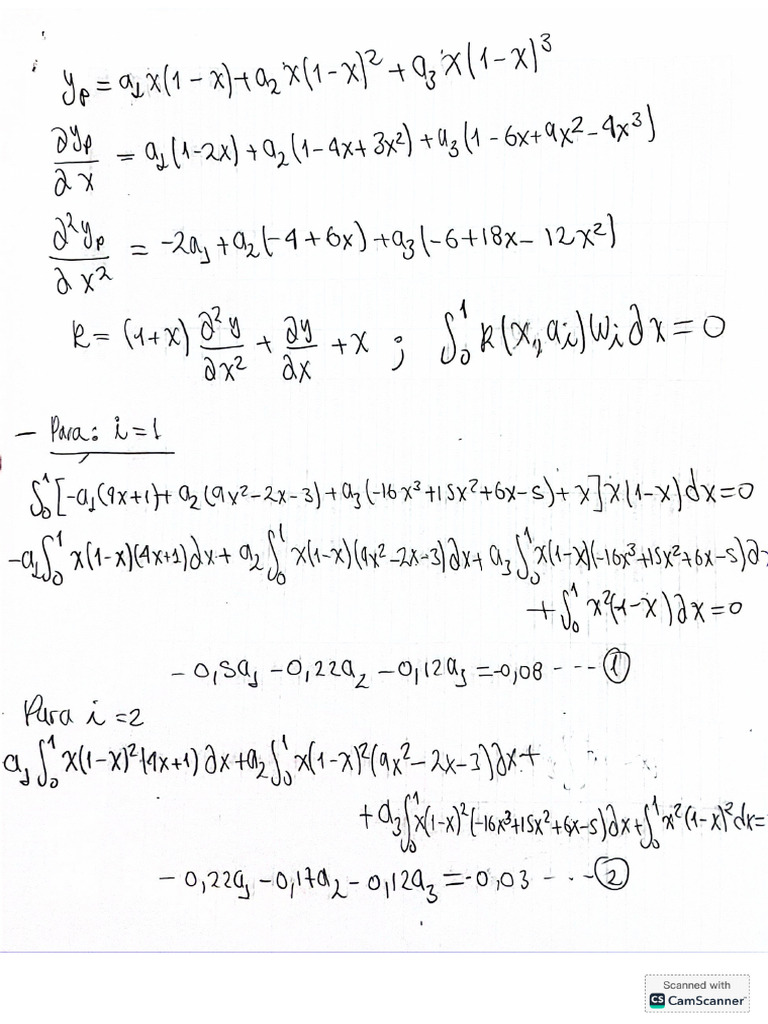 y_p = a_1 x(1-x) + a_2 x(1-x)^2 + a_3 x(1-x)^3
∂y_p/∂x = a_1(1-2x) + a_2(1-4x+3x^2) + a_3(1-6x+9x^2-4x^3)
∂^2y_p/∂x^2 = -2a_1 + a_2(-4+6x) + a_3(-6+18x-12x^2)
R = (1+x) ∂^2y/∂x^2 + ∂y/∂x + x ; ∫_0^1 R(x,a_i) W_i ∂x = 0
- Para: i=1
∫_0^1 [-a_1(4x+1) + a_2(9x^2-2x-3) + a_3(-16x^3+15x^2+6x-5) + x] x(1-x) dx = 0
-a_1 ∫_0^1 x(1-x)(4x+1)∂x + a_2 ∫_0^1 x(1-x)(9x^2-2x-3)∂x + a_3 ∫_0^1 x(1-x)(-16x^3+15x^2+6x-5)∂x
+ ∫_0^1 x^2(1-x)∂x = 0
-0,5a_1 - 0,22a_2 - 0,12a_3 = -0,08 --- ①
Para i=2
a_1 ∫_0^1 x(1-x)^2(4x+1)∂x + a_2 ∫_0^1 x(1-x)^2(9x^2-2x-3)∂x +
+ a_3 ∫_0^1 x(1-x)^2(-16x^3+15x^2+6x-5)∂x + ∫_0^1 x^2(1-x)^2 dx =
-0,22a_1 - 0,17a_2 - 0,12a_3 = -0,03 --- ②
Scanned with
CS CamScanner